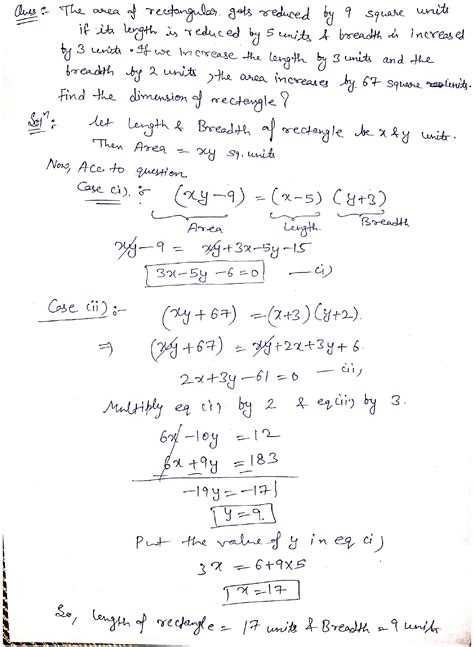 Ques :- The area of rectangular gets reduced by 9 square units
if its length is reduced by 5 units & breadth is increased
by 3 units. If we increase the length by 3 units and the
breadth by 2 units, the area increases by 67 square units.
Find the dimension of rectangle?
Solⁿ :- let Length & Breadth of rectangle be x & y units.
Then Area = xy sq. units
Now, Acc. to question
Case (i) :- (xy-9) = (x-5) (y+3)
Area Length Breadth
xy-9 = xy+3x-5y-15
3x-5y-6=0 —(i)
Case (ii) :- (xy+67) = (x+3)(y+2)
⇒ (xy+67) = xy+2x+3y+6
2x+3y-61=0 —(ii)
Multiply eq (i) by 2 & eq (ii) by 3.
6x-10y = 12
6x+9y = 183
-19y = -171
y=9
Put the value of y in eq (i)
3x = 6+9x5
x=17
So, length of rectangle = 17 units & Breadth = 9 units